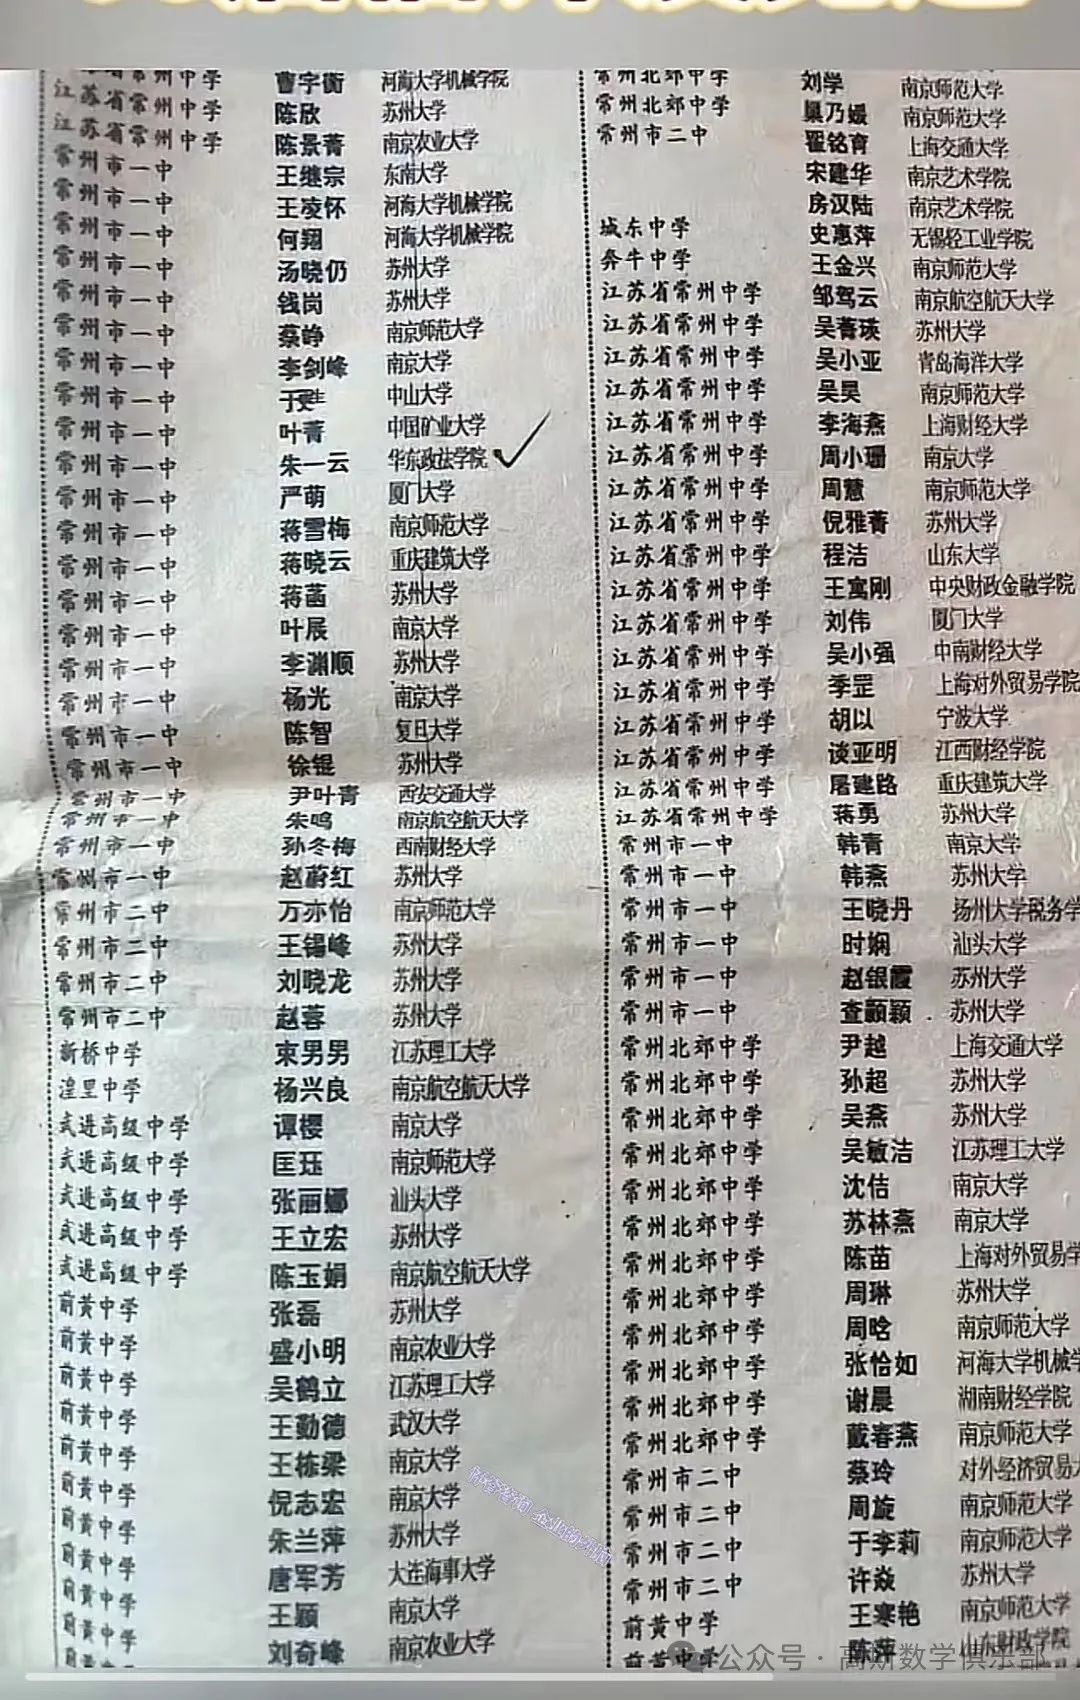 江苏省常州中学 曹宇衡 河海大学机械学院
江苏省常州中学 陈欣 苏州大学
江苏省常州中学 陈景菁 南京农业大学
常州市一中 王继宗 东南大学
常州市一中 王凌怀 河海大学机械学院
常州市一中 何翔 河海大学机械学院
常州市一中 汤晓仍 苏州大学
常州市一中 钱岗 苏州大学
常州市一中 蔡峥 南京师范大学
常州市一中 李剑峰 南京大学
常州市一中 于 中山大学
常州市一中 叶菁 中国矿业大学
常州市一中 朱一云 华东政法学院
常州市一中 严萌 厦门大学
常州市一中 蒋雪梅 南京师范大学
常州市一中 蒋晓云 重庆建筑大学
常州市一中 蒋菡 苏州大学
常州市一中 叶展 南京大学
常州市一中 李渊顺 苏州大学
常州市一中 杨光 南京大学
常州市一中 陈智 复旦大学
常州市一中 徐锟 苏州大学
常州市一中 尹叶青 西安交通大学
常州市一中 朱鸣 南京航空航天大学
常州市一中 孙冬梅 西南财经大学
常州市一中 赵蔚红 苏州大学
常州市二中 万亦怡 南京师范大学
常州市二中 王锡峰 苏州大学
常州市二中 刘晓龙 苏州大学
常州市二中 赵蓉 苏州大学
新桥中学 束男男 江苏理工大学
湟里中学 杨兴良 南京航空航天大学
武进高级中学 谭樱 南京大学
武进高级中学 匡珏 南京师范大学
武进高级中学 张丽娜 汕头大学
武进高级中学 王立宏 苏州大学
武进高级中学 陈玉娟 南京航空航天大学
前黄中学 张磊 苏州大学
前黄中学 盛小明 南京农业大学
前黄中学 吴鹤立 江苏理工大学
前黄中学 王勤德 武汉大学
前黄中学 王栋梁 南京大学
前黄中学 倪志宏 南京大学
前黄中学 朱兰萍 苏州大学
前黄中学 唐军芳 大连海事大学
前黄中学 王颖 南京大学
前黄中学 刘奇峰 南京农业大学
常州北郊中学 刘学 南京师范大学
常州北郊中学 巢乃媛 南京师范大学
常州市二中 翟铭育 上海交通大学
宋建华 南京艺术学院
房汉陆 南京艺术学院
城东中学 史惠萍 无锡轻工业学院
奔牛中学 王金兴 南京师范大学
江苏省常州中学 邹驾云 南京航空航天大学
江苏省常州中学 吴菁瑛 苏州大学
江苏省常州中学 吴小亚 青岛海洋大学
江苏省常州中学 吴昊 南京师范大学
江苏省常州中学 李海燕 上海财经大学
江苏省常州中学 周小珊 南京大学
江苏省常州中学 周慧 南京师范大学
江苏省常州中学 倪雅菁 苏州大学
江苏省常州中学 程洁 山东大学
江苏省常州中学 王寓刚 中央财政金融学院
江苏省常州中学 刘伟 厦门大学
江苏省常州中学 吴小强 中南财经大学
江苏省常州中学 季罡 上海对外贸易学院
江苏省常州中学 胡以 宁波大学
江苏省常州中学 谈亚明 江西财经学院
江苏省常州中学 屠建路 重庆建筑大学
江苏省常州中学 蒋勇 苏州大学
常州市一中 韩青 南京大学
常州市一中 韩燕 苏州大学
常州市一中 王晓丹 扬州大学税务学
常州市一中 时娴 汕头大学
常州市一中 赵银霞 苏州大学
常州市一中 查颐颖 苏州大学
常州北郊中学 尹越 上海交通大学
常州北郊中学 孙超 苏州大学
常州北郊中学 吴燕 苏州大学
常州北郊中学 吴敏洁 江苏理工大学
常州北郊中学 沈佶 南京大学
常州北郊中学 苏林燕 南京大学
常州北郊中学 陈苗 上海对外贸易学
常州北郊中学 周琳 苏州大学
常州北郊中学 周晗 南京师范大学
常州北郊中学 张怡如 河海大学机械学
常州北郊中学 谢晨 湖南财经学院
常州北郊中学 戴春燕 南京师范大学
常州市二中 蔡玲 对外经济贸易大
常州市二中 周旋 南京师范大学
常州市二中 于李莉 南京师范大学
常州市二中 许焱 苏州大学
前黄中学 王寒艳 南京师范大学
前黄中学 陈萍 山东财政学院
公众号 · 高斯数学俱乐部